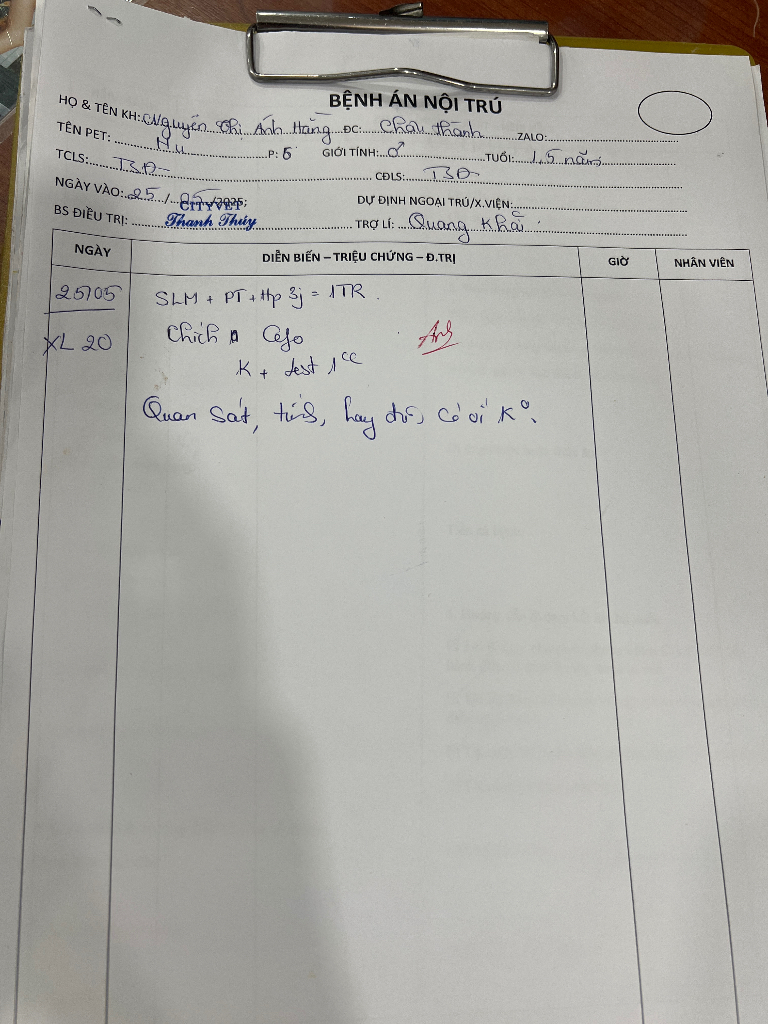 BỆNH ÁN NỘI TRÚ
HỌ & TÊN KH: Nguyễn Thị Ánh Hằng ĐC: Châu Thành ZALO:
TÊN PET: Mu P: 5 GIỚI TÍNH: ♂ TUỔI: 1,5 năm
TCLS: TSD CĐLS: TSD
NGÀY VÀO: 25/05/2025; DỰ ĐỊNH NGOẠI TRÚ/X.VIỆN:
CITYVET
BS ĐIỀU TRỊ: Thanh Thúy TRỢ LÍ: Quang Khải
NGÀY DIỄN BIẾN – TRIỆU CHỨNG – Đ.TRỊ GIỜ NHÂN VIÊN
25/05 SLM + PT + Hp 3j = 1TR.
XL 20 Chích Cefo
K + test 1cc
Quan sát, hay có ói K°.